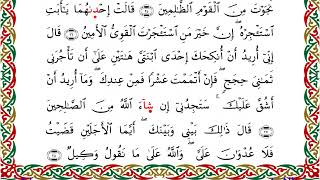 نَجَوْتَ مِنَ ٱلْقَوْمِ ٱلظَّٰلِمِينَ ۝٢٥ قَالَتْ إِحْدَىٰهُمَا يَٰٓأَبَتِ
ٱسْتَـْٔجِرْهُ ۖ إِنَّ خَيْرَ مَنِ ٱسْتَـْٔجَرْتَ ٱلْقَوِىُّ ٱلْأَمِينُ ۝٢٦ قَالَ
إِنِّىٓ أُرِيدُ أَنْ أُنكِحَكَ إِحْدَى ٱبْنَتَىَّ هَٰتَيْنِ عَلَىٰٓ أَن تَأْجُرَنِى
ثَمَٰنِىَ حِجَجٍ ۖ فَإِنْ أَتْمَمْتَ عَشْرًا فَمِنْ عِندِكَ ۖ وَمَآ أُرِيدُ أَنْ
أَشُقَّ عَلَيْكَ ۚ سَتَجِدُنِىٓ إِن شَآءَ ٱللَّهُ مِنَ ٱلصَّٰلِحِينَ
۝٢٧ قَالَ ذَٰلِكَ بَيْنِى وَبَيْنَكَ ۖ أَيَّمَا ٱلْأَجَلَيْنِ قَضَيْتُ
فَلَا عُدْوَٰنَ عَلَىَّ ۖ وَٱللَّهُ عَلَىٰ مَا نَقُولُ وَكِيلٌ ۝٢٨